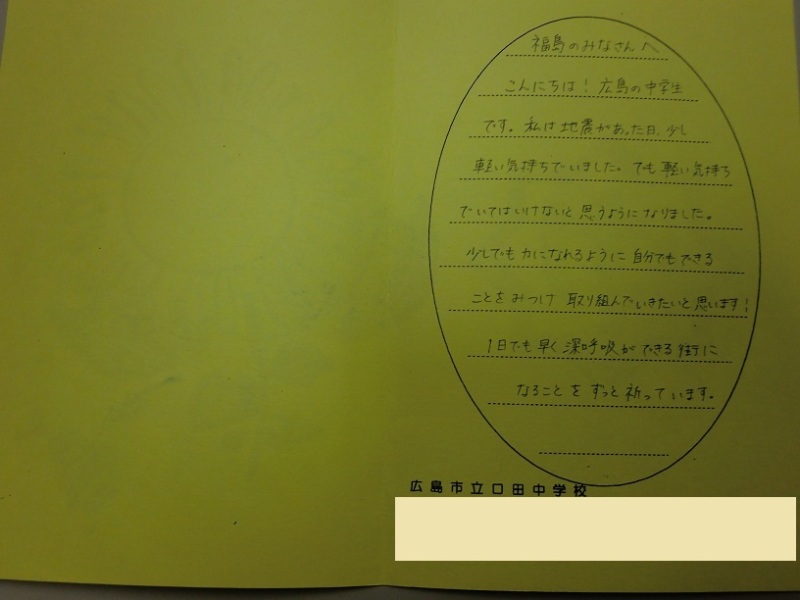 福島のみなさんへ
こんにちは！広島の中学生
です。私は地震があった日、少し
軽い気持ちでいました。でも軽い気持ち
でいてはいけないと思うようになりました。
少しでも力になれるように自分でもできる
ことをみつけ取り組んでいきたいと思います！
1日でも早く深呼吸ができる街に
なることをずっと祈っています。
広島市立口田中学校